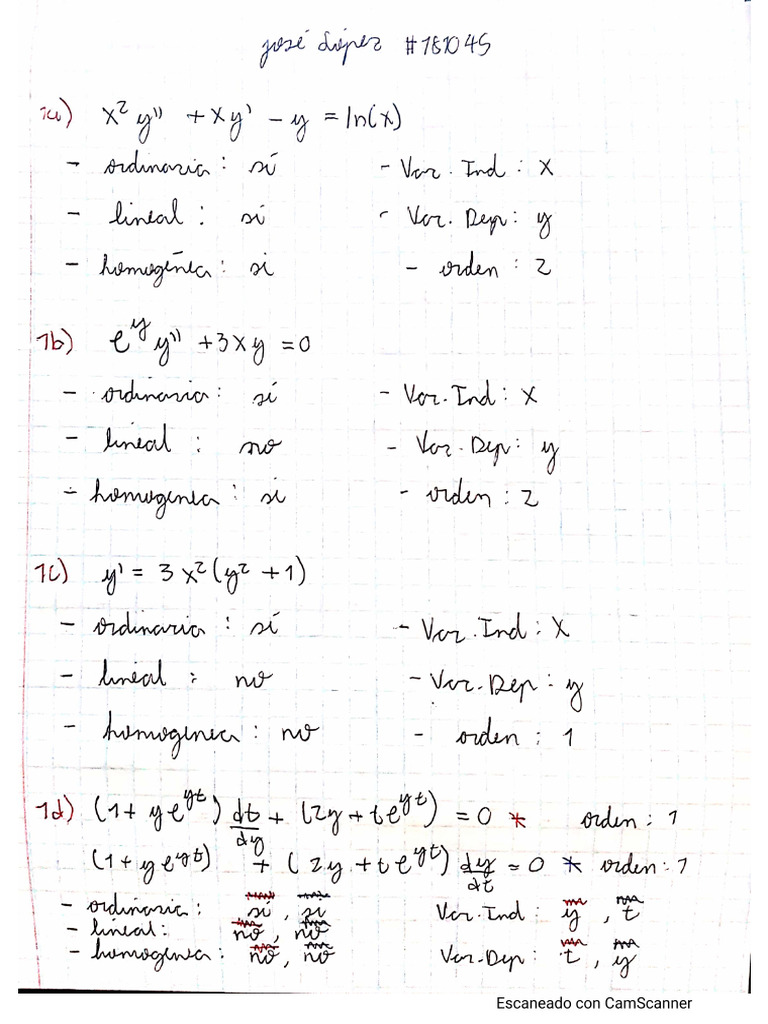 José López #181045
1a) x² y'' + xy' - y = ln(x)
- ordinaria : sí - Var. Ind : x
- lineal : sí - Var. Dep : y
- homogénea : si - orden : 2
1b) e^y y'' + 3xy = 0
- ordinaria : sí - Var. Ind : x
- lineal : no - Var. Dep : y
- homogenea : si - orden : 2
1c) y' = 3x² (y² + 1)
- ordinaria : sí - Var. Ind : x
- lineal : no - Var. Dep : y
- homogenea : no - orden : 1
1d) (1 + ye^yt) dt/dy + (2y + te^yt) = 0 * orden : 1
(1 + ye^yt) + (2y + te^yt) dy/dt = 0 * orden : 1
- ordinaria : sí , si Var. Ind : y , t
- lineal : no , no
- homogenea : no , no Var. Dep : t , y
Escaneado con CamScanner